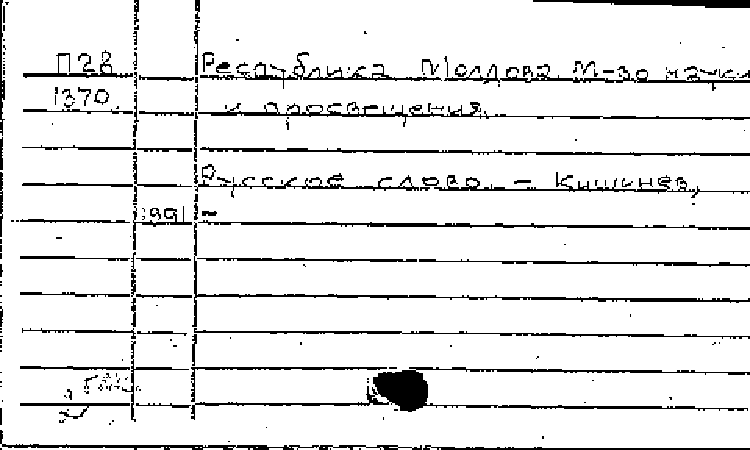 П28 Республика Молдова. М-во науки
1370. и просвещения.
Русское слово. – Кишинев,
1991 –